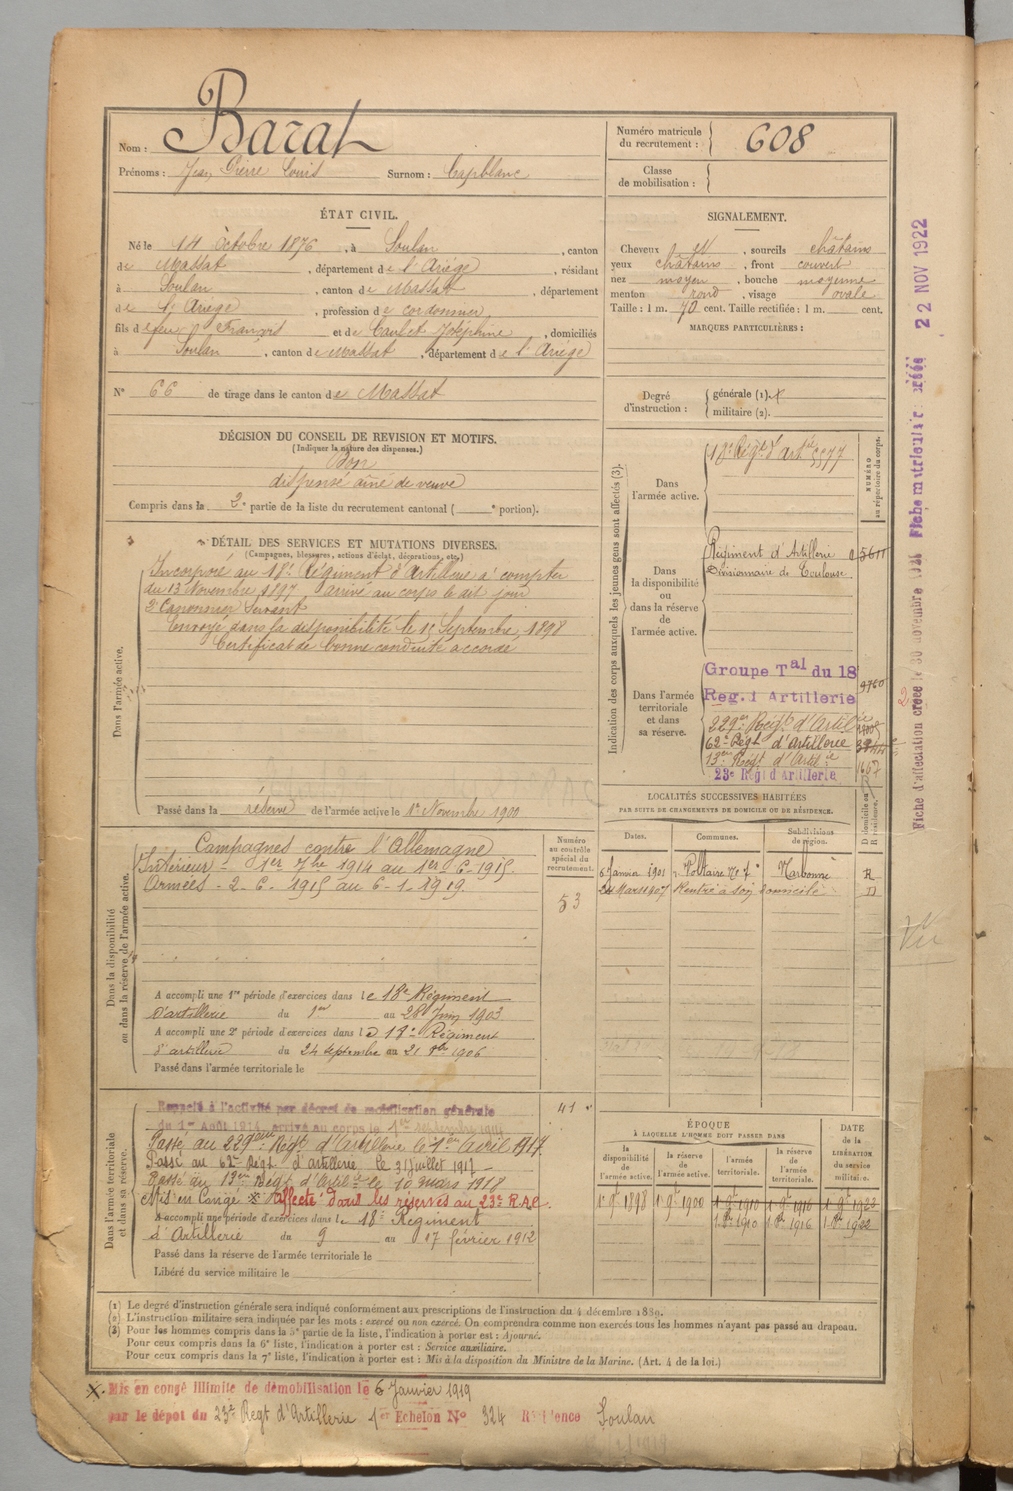 Nom : Barat
Prénoms : Jean Pierre Louis Surnom : Capblanc
Numéro matricule du recrutement : 608
Classe de mobilisation :
ÉTAT CIVIL.
Né le 14 Octobre 1876, à Soulan, canton
de Massat, département de l'Ariège, résidant
à Soulan, canton de Massat, département
de l'Ariège, profession de cordonnier,
fils de feu François et de Caulet Joséphine, domiciliés
à Soulan, canton de Massat, département de l'Ariège
SIGNALEMENT.
Cheveux et, sourcils châtains
yeux châtains, front couvert
nez moyen, bouche moyenne
menton rond, visage ovale
Taille : 1 m. 70 cent. Taille rectifiée : 1 m. cent.
MARQUES PARTICULIÈRES :
N° 66 de tirage dans le canton de Massat
Degré d'instruction : générale (1).
militaire (2).
DÉCISION DU CONSEIL DE REVISION ET MOTIFS.
(Indiquer la nature des dispenses.)
Bon
dispensé aîné de veuve
Compris dans la 2e partie de la liste du recrutement cantonal ( e portion).
DÉTAIL DES SERVICES ET MUTATIONS DIVERSES.
(Campagnes, blessures, actions d'éclat, décorations, etc.)
Dans l'armée active.
Incorporé au 18e Régiment d'Artillerie à compter
du 13 Novembre 1897, arrivé au corps le dit jour
2e Canonnier Servant
Envoyé dans la disponibilité le Septembre 1898
Certificat de bonne conduite accordé
Passé dans la réserve de l'armée active le 1er Novembre 1900
Indication des corps auxquels les jeunes gens sont affectés (3).
NUMÉRO au répertoire du corps.
Dans l'armée active.
18e Régt d'Artie 5577
Dans la disponibilité ou dans la réserve de l'armée active.
Régiment d'Artillerie
Divisionnaire de Toulouse
Dans l'armée territoriale et dans sa réserve.
Groupe Tal du 18
Reg. d Artillerie 9760
229e Régt d'Artie
62e Régt d'Artillerie
13e Régt d'Artie 1667
23e Régt d'Artillerie
Dans la disponibilité ou dans la réserve de l'armée active.
Campagnes contre l'Allemagne
Intérieur - 1er 7bre 1914 au 1er 6-1915.
Armées - 2-6-1915 au 6-1-1919.
A accompli une 1re période d'exercices dans le 18e Régiment
d'artillerie du 1er au 28 Juin 1903
A accompli une 2e période d'exercices dans le 18e Régiment
d'artillerie du 24 septembre au 21 8bre 1906
Passé dans l'armée territoriale le
Numéro au contrôle spécial du recrutement.
53
41
LOCALITÉS SUCCESSIVES HABITÉES
PAR SUITE DE CHANGEMENTS DE DOMICILE OU DE RÉSIDENCE.
Dates. Communes. Subdivisions de région. D domicile ou R résidence.
6 Janvier 1901 r. Voltaire No 7 Narbonne R
24 Mars 1907 Rentré à son domicile D
Dans l'armée territoriale et dans sa réserve.
Rappelé à l'activité par décret de mobilisation générale
du 1er Août 1914, arrivé au corps le 1er septembre 1914
Passé au 229eme Régt d'Artillerie le 1er Avril 1917
Passé au 62e Régt d'artillerie le 31 juillet 1917
Passé au 13eme Régt d'Artie le 10 mars 1918
Mis en Congé X Affecté dans les réserves au 23e R.A.C.
A accompli une période d'exercices dans le 18e Régiment
d'Artillerie du 9 au 17 février 1912
Passé dans la réserve de l'armée territoriale le
Libéré du service militaire le
ÉPOQUE
À LAQUELLE L'HOMME DOIT PASSER DANS
la disponibilité de l'armée active. la réserve de l'armée active. l'armée territoriale. la réserve de l'armée territoriale.
DATE de la LIBÉRATION du service militaire.
1 9bre 1898 1 9bre 1900 1 9bre 1910 1 9bre 1916 1 9bre 1922
1 8bre 1910 1 8bre 1916 1 8bre 1922
(1) Le degré d'instruction générale sera indiqué conformément aux prescriptions de l'instruction du 4 décembre 1889.
(2) L'instruction militaire sera indiquée par les mots : exercé ou non exercé. On comprendra comme non exercés tous les hommes n'ayant pas passé au drapeau.
(3) Pour les hommes compris dans la 5e partie de la liste, l'indication à porter est : Ajourné.
Pour ceux compris dans la 6e liste, l'indication à porter est : Service auxiliaire.
Pour ceux compris dans la 7e liste, l'indication à porter est : Mis à la disposition du Ministre de la Marine. (Art. 4 de la loi.)
X. Mis en congé illimité de démobilisation le 6 Janvier 1919
par le dépôt du 23e Régt d'Artillerie 1er Echelon No 324 Résidence Soulan
Fiche d'affectation créée le 30 novembre Fiche matriculaire créée 22 NOV 1922
Vu